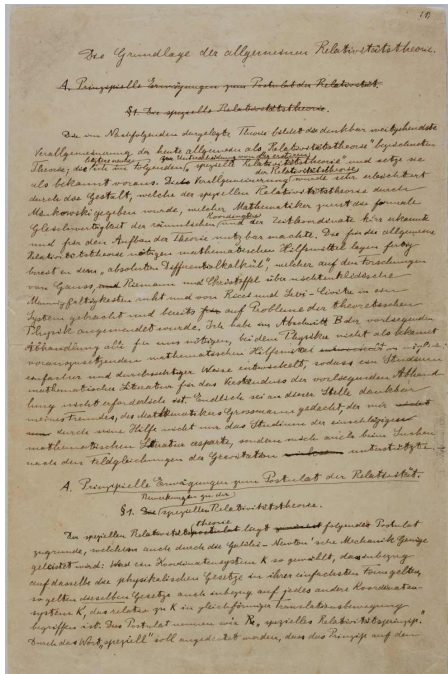 10
Die Grundlage der allgemeinen Relativitätstheorie.
A. Prinzipielle Erwägungen zum Postulat der Relativität.
§1. Die spezielle Relativitätstheorie.
Die im Nachfolgenden dargelegte Theorie bildet die denkbar weitgehendste
Verallgemeinerung der heute allgemein als "Relativitätstheorie" bezeichneten
Theorie; die letztere nenne ich im Folgenden zur Unterscheidung von der ersteren "spezielle Relativitätstheorie" und setze sie
als bekannt voraus. Die Verallgemeinerung der Relativitätstheorie wurde sehr erleichtert
durch die Gestalt, welche der speziellen Relativitätstheorie durch
Minkowski gegeben wurde, welcher Mathematiker zuerst die formale
Gleichwertigkeit der räumlichen Koordinaten und der Zeitkoordinate klar erkannte
und für den Aufbau der Theorie nutzbar machte. Die für die allgemeine
Relativitätstheorie nötigen mathematischen Hilfsmittel lagen fertig
bereit in dem "absoluten Differentialkalkül", welcher auf den Forschungen
von Gauss, Riemann und Christoffel über nichteuklidische
Mannigfaltigkeiten ruht und von Ricci und Levi-Civita in ein
System gebracht und bereits auf Probleme der theoretischen
Physik angewendet wurde. Ich habe im Abschnitt B der vorliegenden
Abhandlung alle für uns nötigen, bei dem Physiker nicht als bekannt
vorauszusetzenden mathematischen Hilfsmittel in möglichst
einfacher und durchsichtiger Weise entwickelt, sodass ein Studium
mathematischer Literatur für das Verständnis der vorliegenden Abhand-
lung nicht erforderlich ist. Endlich sei an dieser Stelle dankbar
meines Freundes, des Mathematikers Grossmann gedacht, der mir
durch seine Hilfe nicht nur das Studium der einschlägigen
mathematischen Literatur ersparte, sondern mich auch beim Suchen
nach den Feldgleichungen der Gravitation unterstützte.
A. Prinzipielle Erwägungen zum Postulat der Relativität.
Bemerkungen zu der
§1. Die speziellen Relativitätstheorie.
Der speziellen Relativitätstheorie liegt folgendes Postulat
zugrunde, welchem auch durch die Galilei-Newton'sche Mechanik Genüge
geleistet wird: Wird ein Koordinatensystem K so gewählt, dass inbezug
auf dasselbe die physikalischen Gesetze in ihrer einfachsten Form gelten,
so gelten dieselben Gesetze auch inbezug auf jedes andere Koordinaten-
system K', das relativ zu K in gleichförmiger Translationsbewegung
begriffen ist. Dies Postulat nennen wir "spezielles Relativitätsprinzip".
Durch das Wort "speziell" soll angedeutet werden, dass das Prinzip auf den